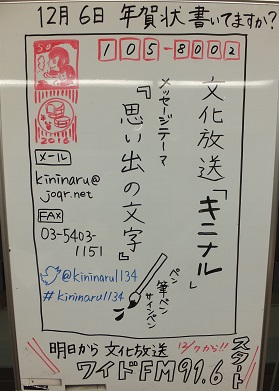 12月6日 年賀状書いてますか?
50
2016
105-8002
文化放送「キニナル」
メッセージテーマ
『思い出の文字』
ペン
筆ペン
サインペン
メール
kininaru@
joqr.net
FAX
03-5403-
1151
@kininaru1134
#kininaru1134
明日から文化放送
ワイドFM91.6
13じから!!
スタート